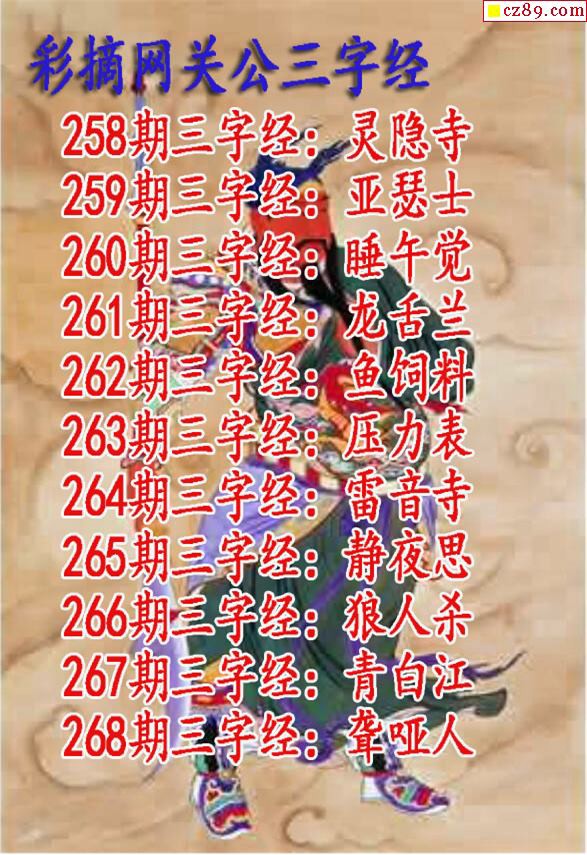 cz89.com
彩摘网关公三字经
258期三字经：灵隐寺
259期三字经：亚瑟士
260期三字经：睡午觉
261期三字经：龙舌兰
262期三字经：鱼饲料
263期三字经：压力表
264期三字经：雷音寺
265期三字经：静夜思
266期三字经：狼人杀
267期三字经：青白江
268期三字经：聋哑人